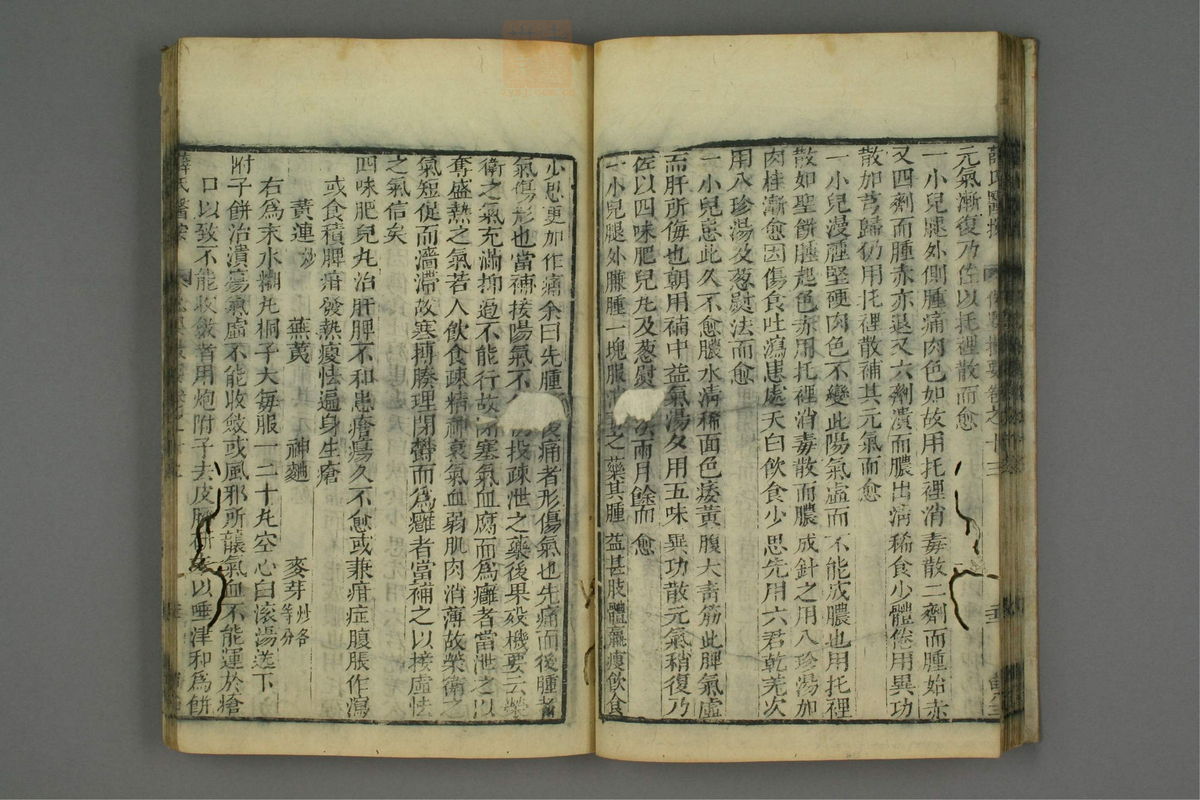 元氣漸復乃佐以托裡散而愈
一小兒腿外側腫痛肉色如故用托裡消毒散二劑而腫始赤
又四劑而腫赤亦退又六劑潰而膿出淸稀食少體倦用異功
散加芎歸仍用托裡散補其元氣而愈
一小兒漫腫堅硬肉色不變此陽氣虛而不能成膿也用托裡
散如聖餅腫起色赤用托裡消毒散而膿成針之用八珍湯加
肉桂漸愈因傷食吐瀉患處夭白飲食少思先用六君乾羌次
用八珍湯及葱熨法而愈
一小兒患此久不愈膿水淸稀面色痿黃腹大靑筋此脾氣虛
而肝所侮也朝用補中益氣湯夕用五味異功散元氣稍復乃
佐以四味肥兒丸及葱熨 次兩月餘而愈
一小兒腿外臁腫一塊服消毒之藥其腫益甚肢體羸瘦飲食
少思更加作痛余曰先腫 後痛者形傷氣也先痛而後腫者
氣傷形也當補接陽氣不 投疎泄之藥後果歿機要云榮
衛之氣充滿抑遏不能行故閉塞氣血腐而爲癰者當泄之以
奪盛熱之氣若人飲食疎精神衰氣血弱肌肉消薄故榮衛之
氣短促而濇滯故塞搏腠理閉鬱而爲癰者當補之以接虛怯
之氣信矣
四味肥兒丸治肝脾不和患瘡瘍久不愈或兼疳症腹脹作瀉
或食積脾疳發熱瘦怯遍身生瘡
黃連炒 蕪荑 神麯 麥芽炒各等分
右爲末水糊丸桐子大每服一二十丸空心白滾湯送下
附子餅治潰瘍氣虛不能收斂或風邪所襲氣血不能運於瘡
口以致不能收斂者用炮附子去皮臍研 以唾津和爲餅
薛氏醫按